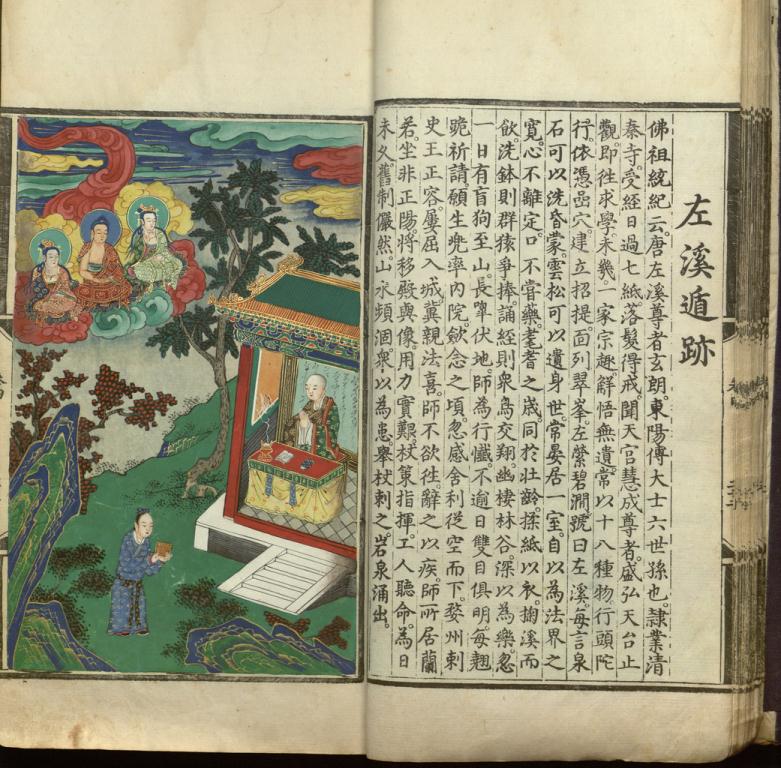 左溪遁跡
佛祖統紀云。唐左溪尊者玄朗。東陽傅大士六世孫也。隷業清
泰寺。受經日過七紙。落髮得戒。聞天宮慧成尊者。盛弘天台止
觀。即往求學。未幾。一家宗趣。觧悟無遺。常以十八種物行頭陀
行。依憑嵒穴。建立招提。面列翠峯。左縈碧澗。號曰左溪。每言泉
石可以洗昏蒙。雲松可以遺身世。常晏居一室。自以為法界之
寬。心不離定。口不嘗藥。耄耆之歲。同於壯齡。揉紙以衣。掬溪而
飲。洗鉢則群猿爭捧。誦經則衆鳥交翔。幽棲林谷。深以為樂。忽
一日有盲狗至山。長嘷伏地。師為行懺。不逾日雙目俱明。每翹
跪祈請。願生兠率內院。斂念之頃。忽感舍利從空而下。婺州刺
史王正容。屢屈入城。冀親法喜。師不欲往。辭之以疾。師所居蘭
若。坐非正陽。將移殿與像。用力實艱。杖策指揮。工人聽命。為日
未久。舊制儼然。山水頻涸。衆以為患。舉杖刺之。岩泉涌出。